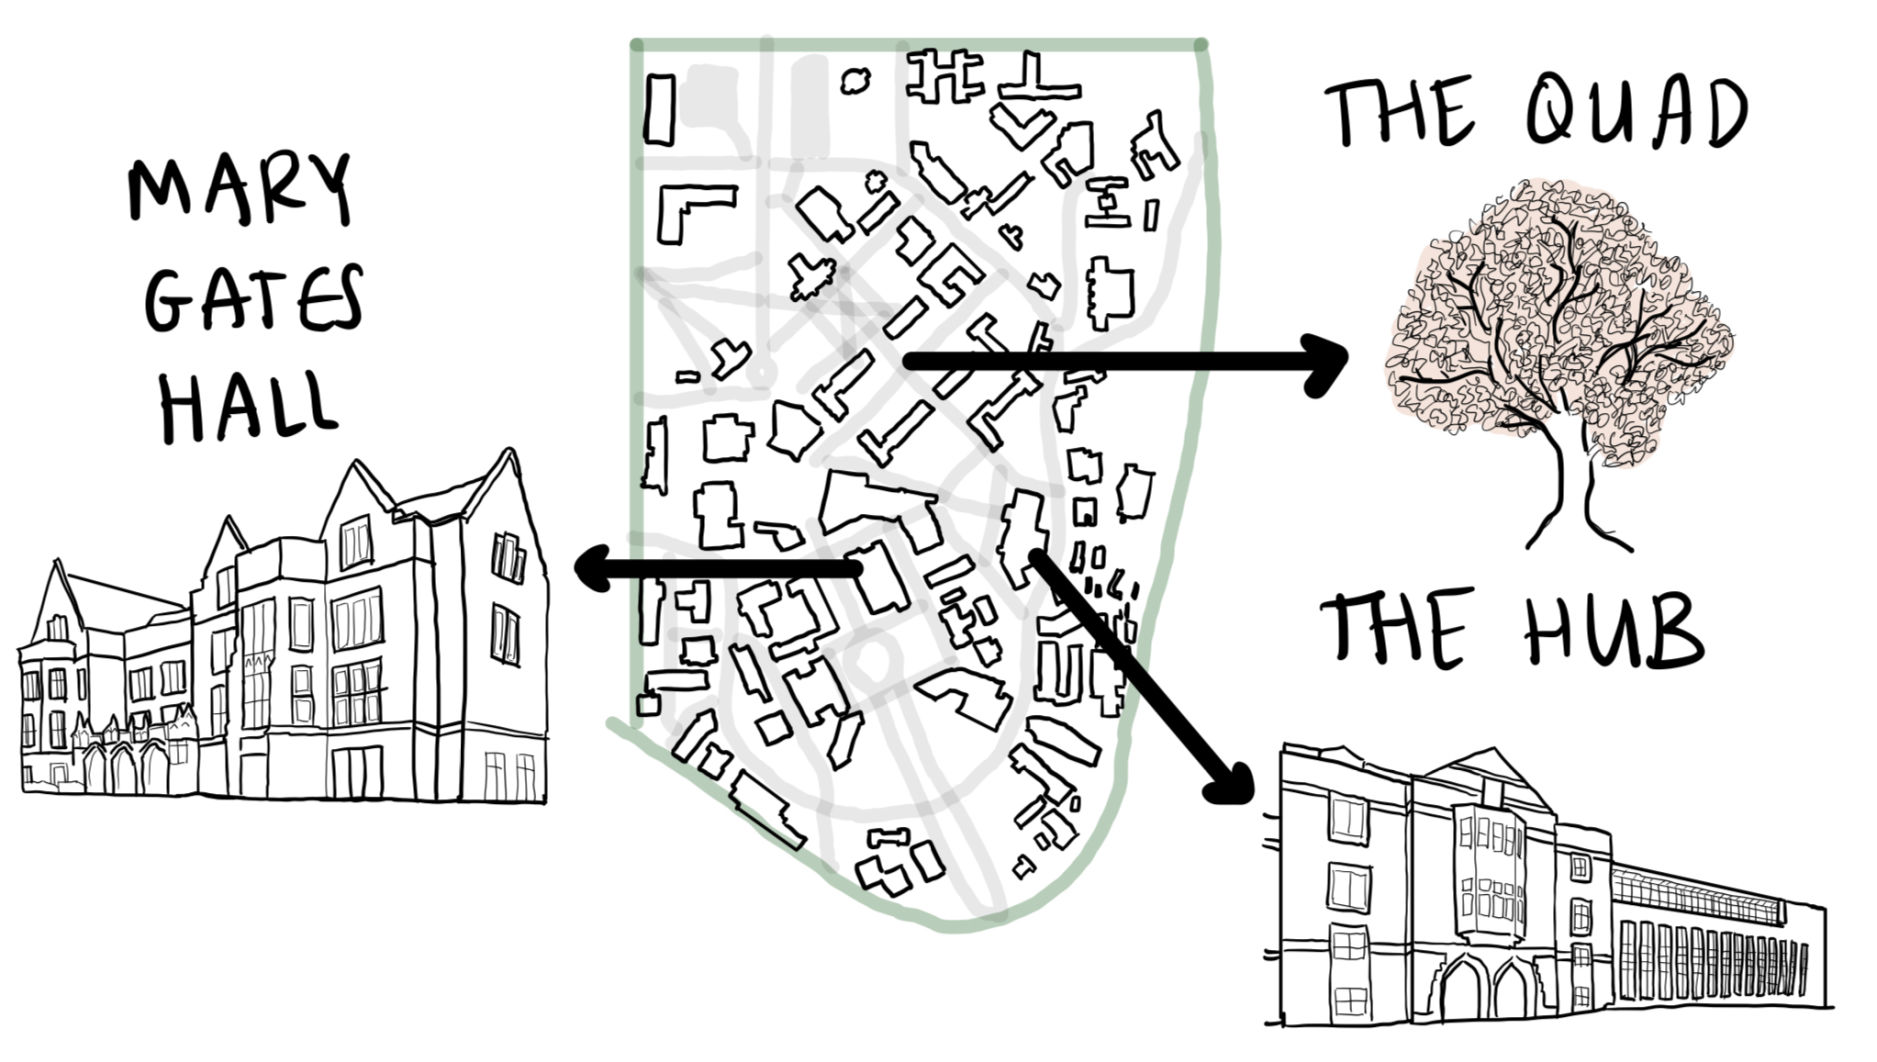 MARY
GATES
HALL
THE QUAD
THE HUB